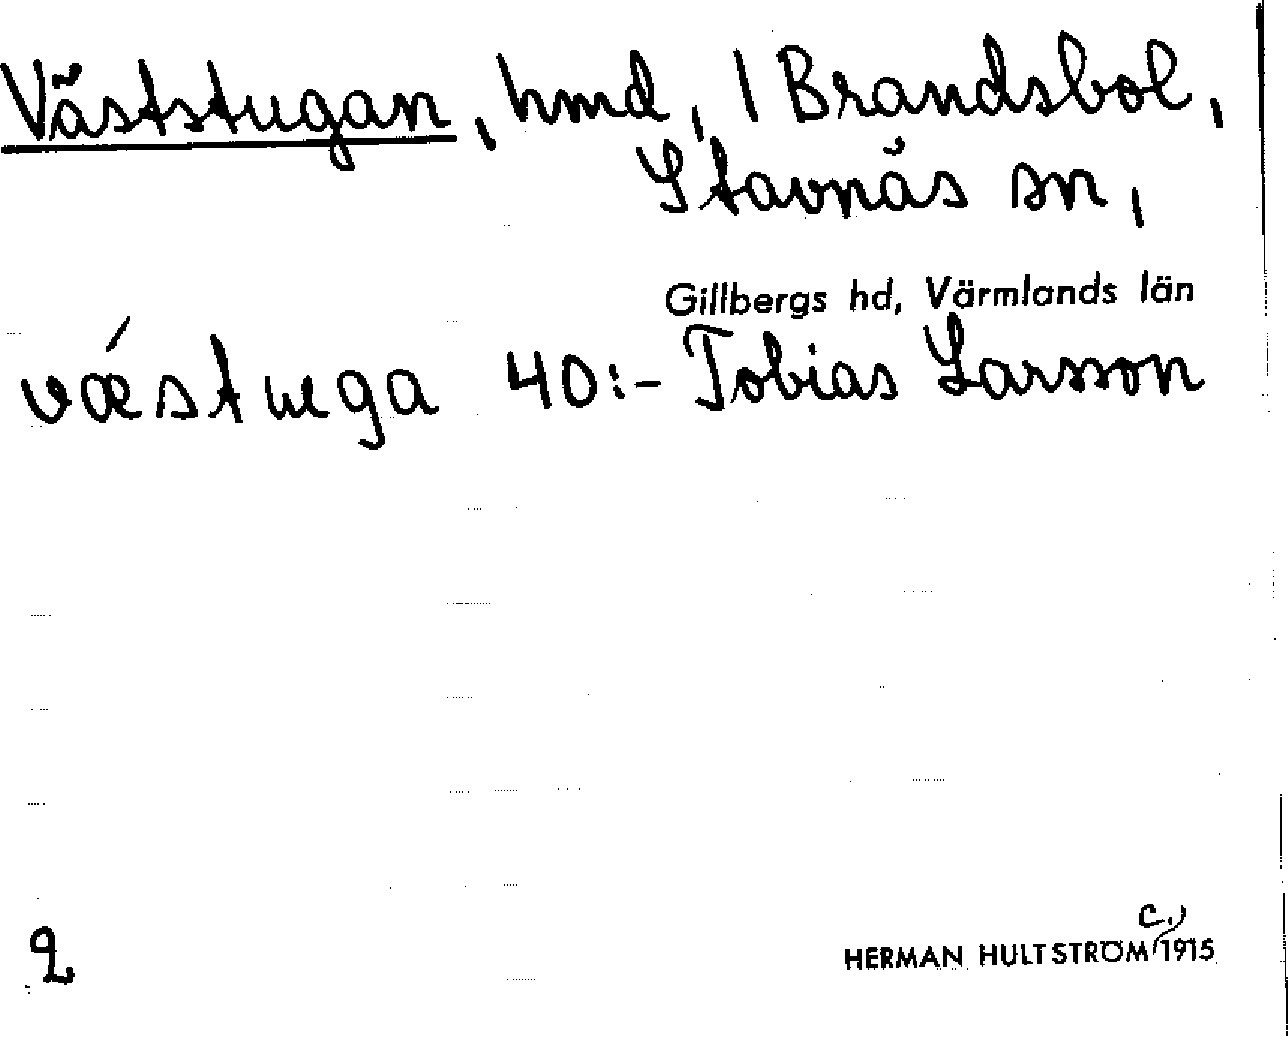 Väststugan, hmd, 1 Brandsbol,
Stavnäs sn,
Gillbergs hd, Värmlands län
vǽstuga 40:- Tobias Larsson
2
c.)
HERMAN HULTSTRÖM 1915